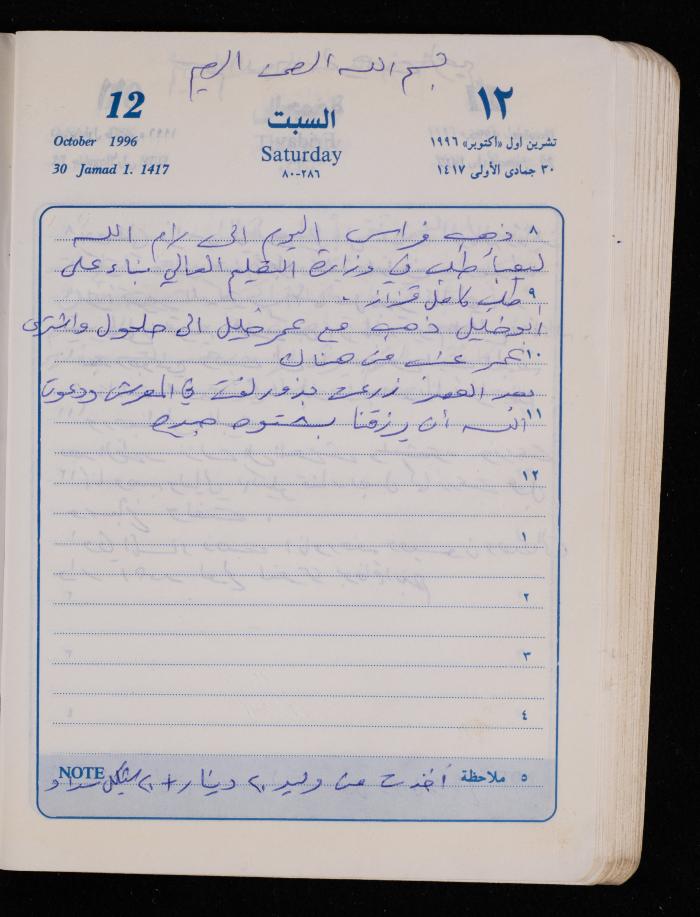 بسم الله الرحمن الرحيم
12 ١٢
السبت
October 1996 تشرين اول «اكتوبر» ١٩٩٦
Saturday
30 Jamad 1. 1417 ٣٠ جمادى الأولى ١٤١٧
٢٨٦-٨٠
٨ ذهب فراس اليوم الى رام الله
ليعبأ طلب في وزارة التعليم العالي بناء على
٩ طلب كامل قزاز .
أبو خليل ذهب مع عمر خليل الى حلحول واشترى
١٠ عمر عنب من هناك
بعد العصر زرعت بذور لفت في المعرش ودعوت
١١ الله أن يرزقنا بشتوه جيده
١٢
١
٢
٣
٤
NOTE ٥ ملاحظة أخذت من وليد ٢٠ دينار + ٢٠ شيكل